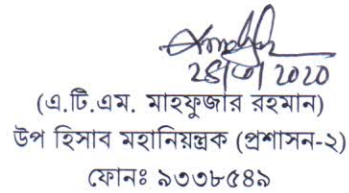 2020
(এ.টি.এম. মাহফুজার রহমান)
উপ হিসাব মহানিয়ন্ত্রক (প্রশাসন-২)
ফোনঃ ৯৩৩৮৫৪৯